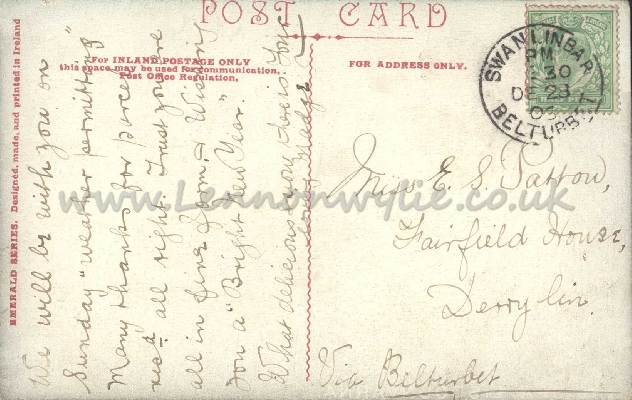 POST CARD
For INLAND POSTAGE ONLY
this space may be used for communication.
Post Office Regulation.
FOR ADDRESS ONLY.
EMERALD SERIES. Designed, made, and printed in Ireland
We will be with you on
Sunday "weather permitting"
Many thanks for
recd all right. Trust you are
all in fine form, & Wishing
You a "Bright New Year."
What delicious
love Madge
SWANLINBAR
PM
30
DE 23
BELTURBET
Miss E. S. Pattow,
Fairfield House,
Derrylin.
Via Belturbet
www.Lennonwylie.co.uk